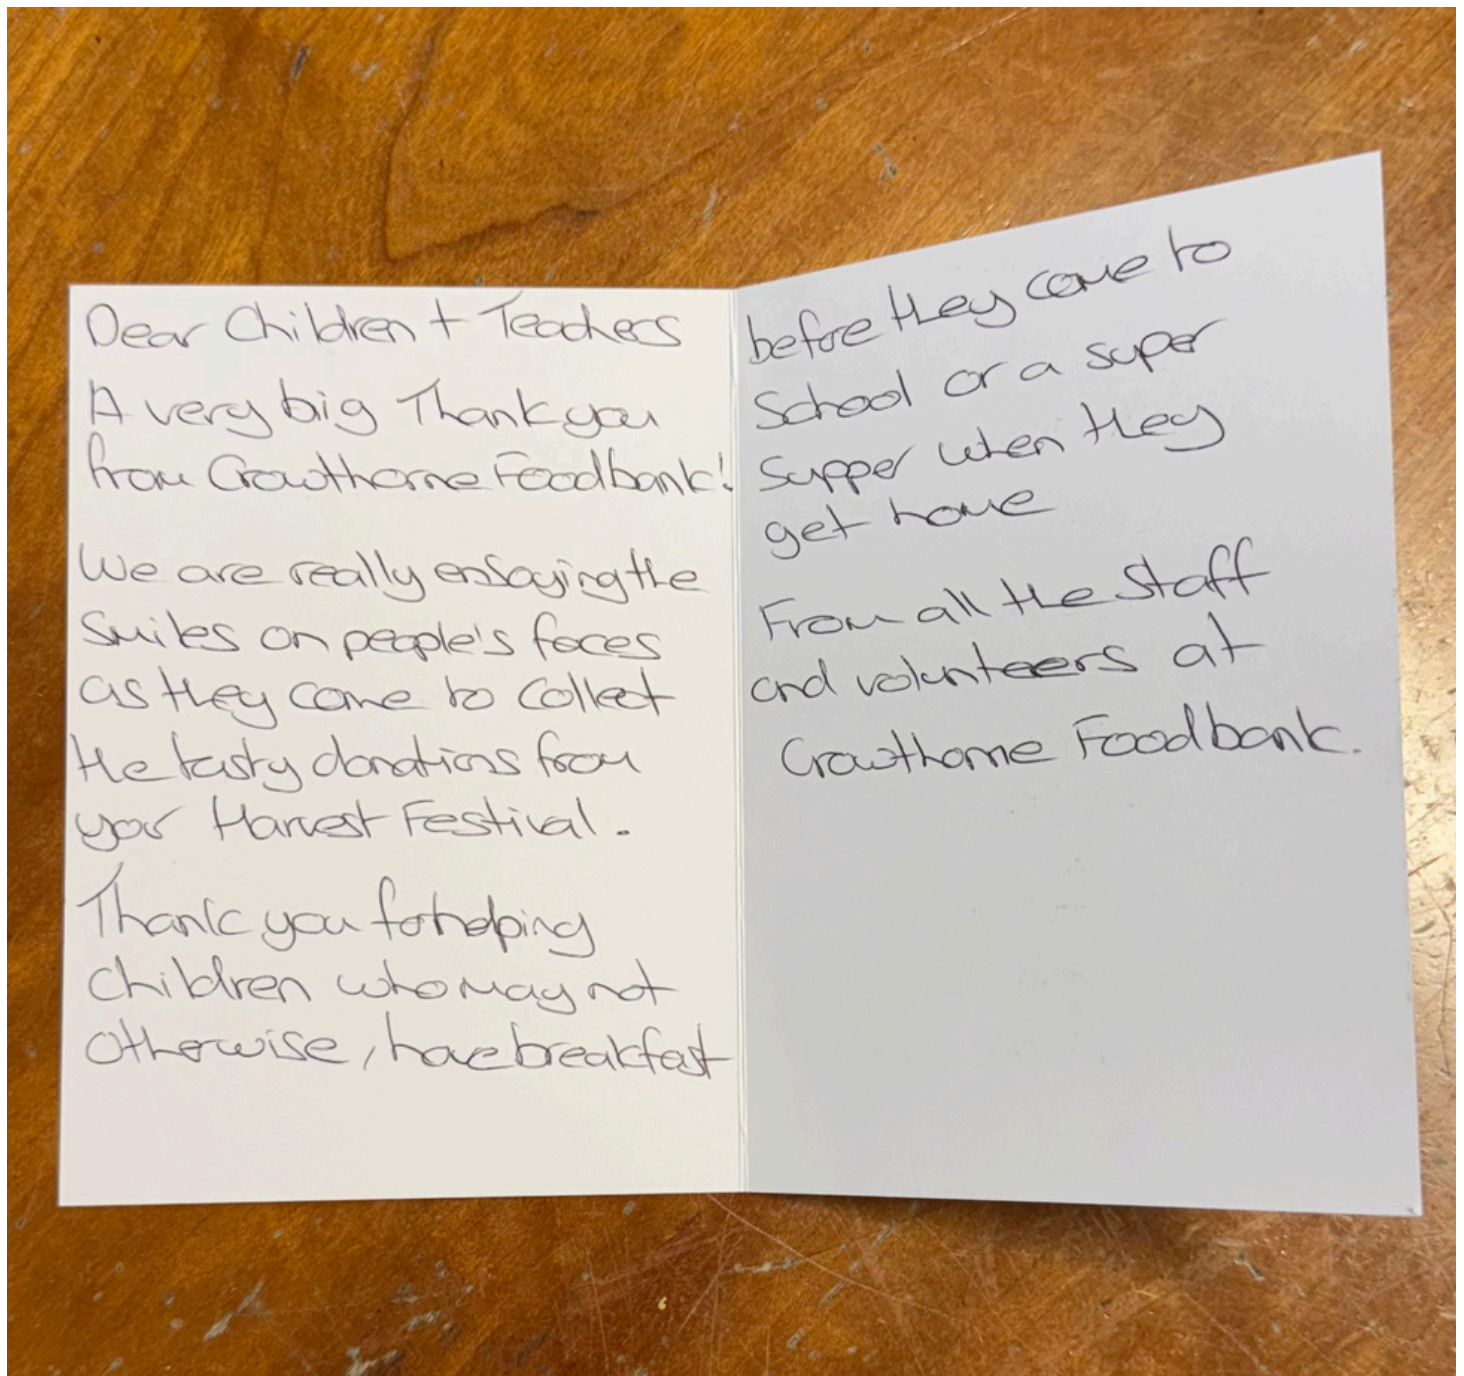 Dear Children + Teachers
A very big Thank you
from Crowthorne Foodbank!
We are really enjoying the
smiles on people's faces
as they come to collect
the tasty donations from
your Harvest Festival.
Thank you for helping
children who may not
otherwise, have breakfast
before they come to
School or a super
supper when they
get home
From all the staff
and volunteers at
Crowthorne Foodbank.